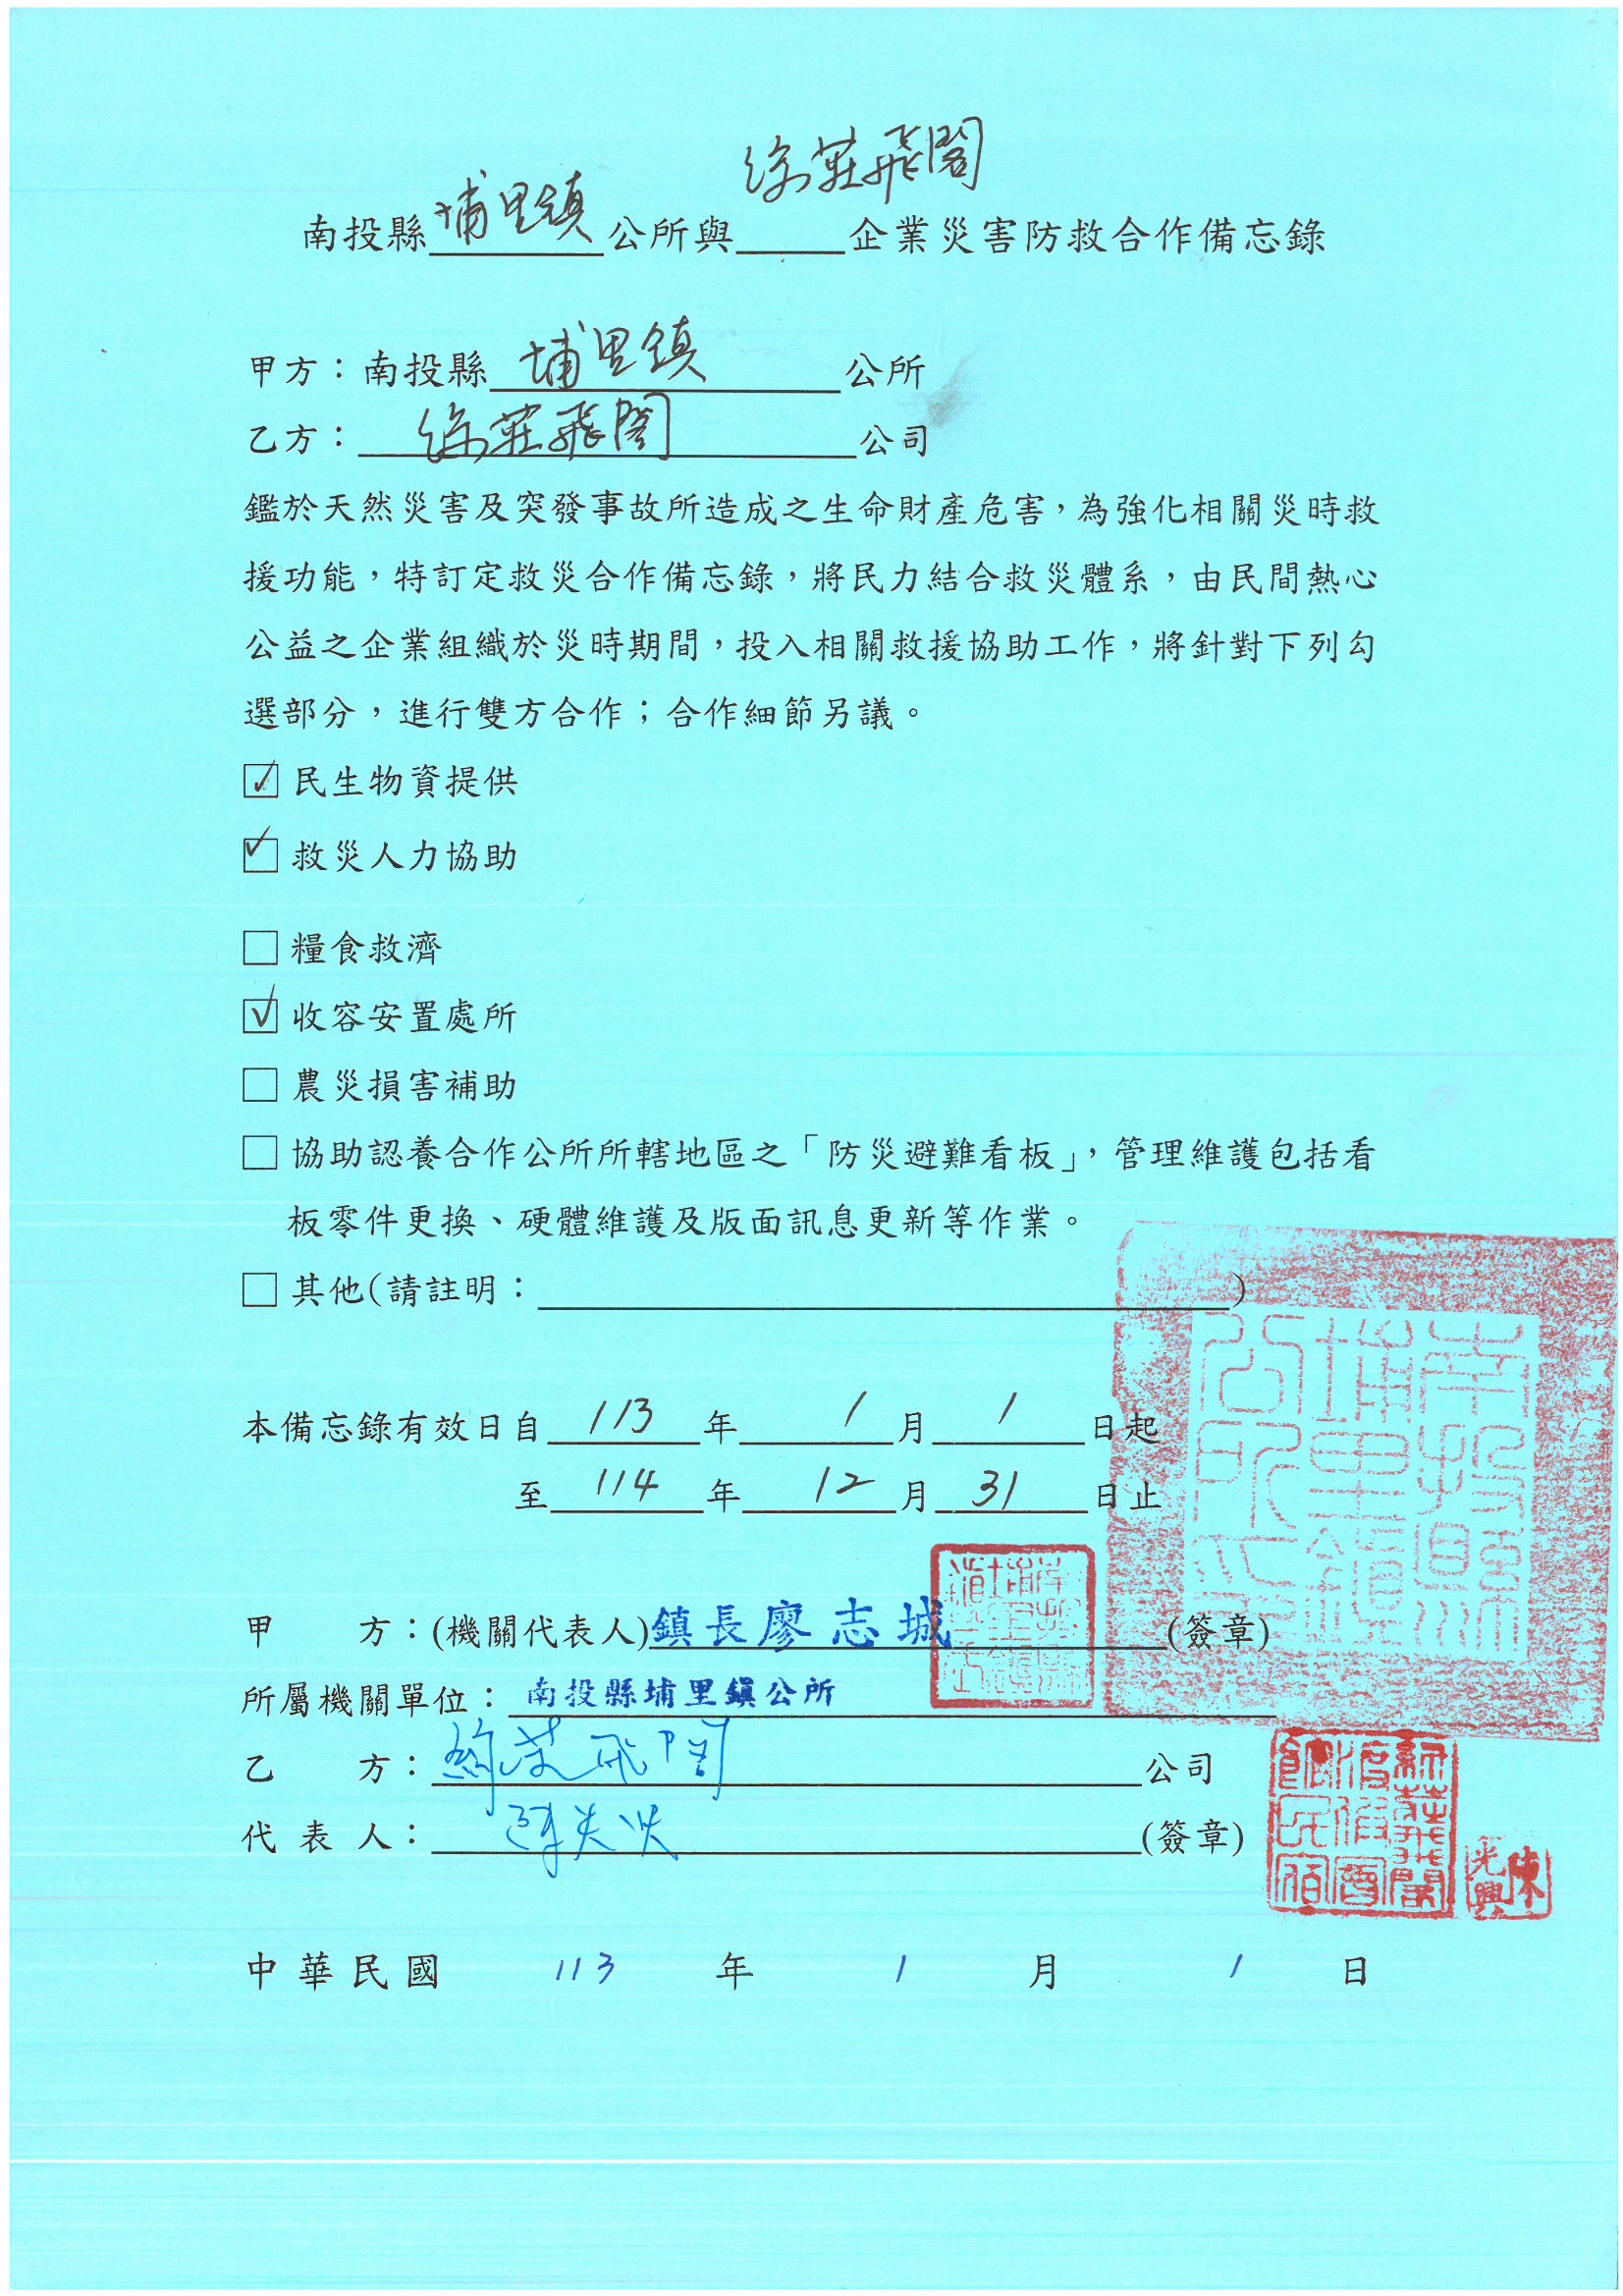 綠莊飛閣
南投縣埔里鎮公所與企業災害防救合作備忘錄
甲方：南投縣埔里鎮公所
乙方：綠莊飛閣公司
鑑於天然災害及突發事故所造成之生命財產危害，為強化相關災時救
援功能，特訂定救災合作備忘錄，將民力結合救災體系，由民間熱心
公益之企業組織於災時期間，投入相關救援協助工作，將針對下列勾
選部分，進行雙方合作；合作細節另議。
☑ 民生物資提供
☑ 救災人力協助
□ 糧食救濟
☑ 收容安置處所
□ 農災損害補助
□ 協助認養合作公所所轄地區之「防災避難看板」，管理維護包括看
板零件更換、硬體維護及版面訊息更新等作業。
□ 其他(請註明：)
本備忘錄有效日自 113 年 1 月 1 日起
至 114 年 12 月 31 日止
南投縣埔里鎮公所印
甲　　方：(機關代表人)鎮長廖志城(簽章)
所屬機關單位：南投縣埔里鎮公所
乙　　方：綠莊飛閣公司
代 表 人：陳光興(簽章)
綠莊飛閣渡假會館民宿
陳光興
中華民國 113 年 1 月 1 日